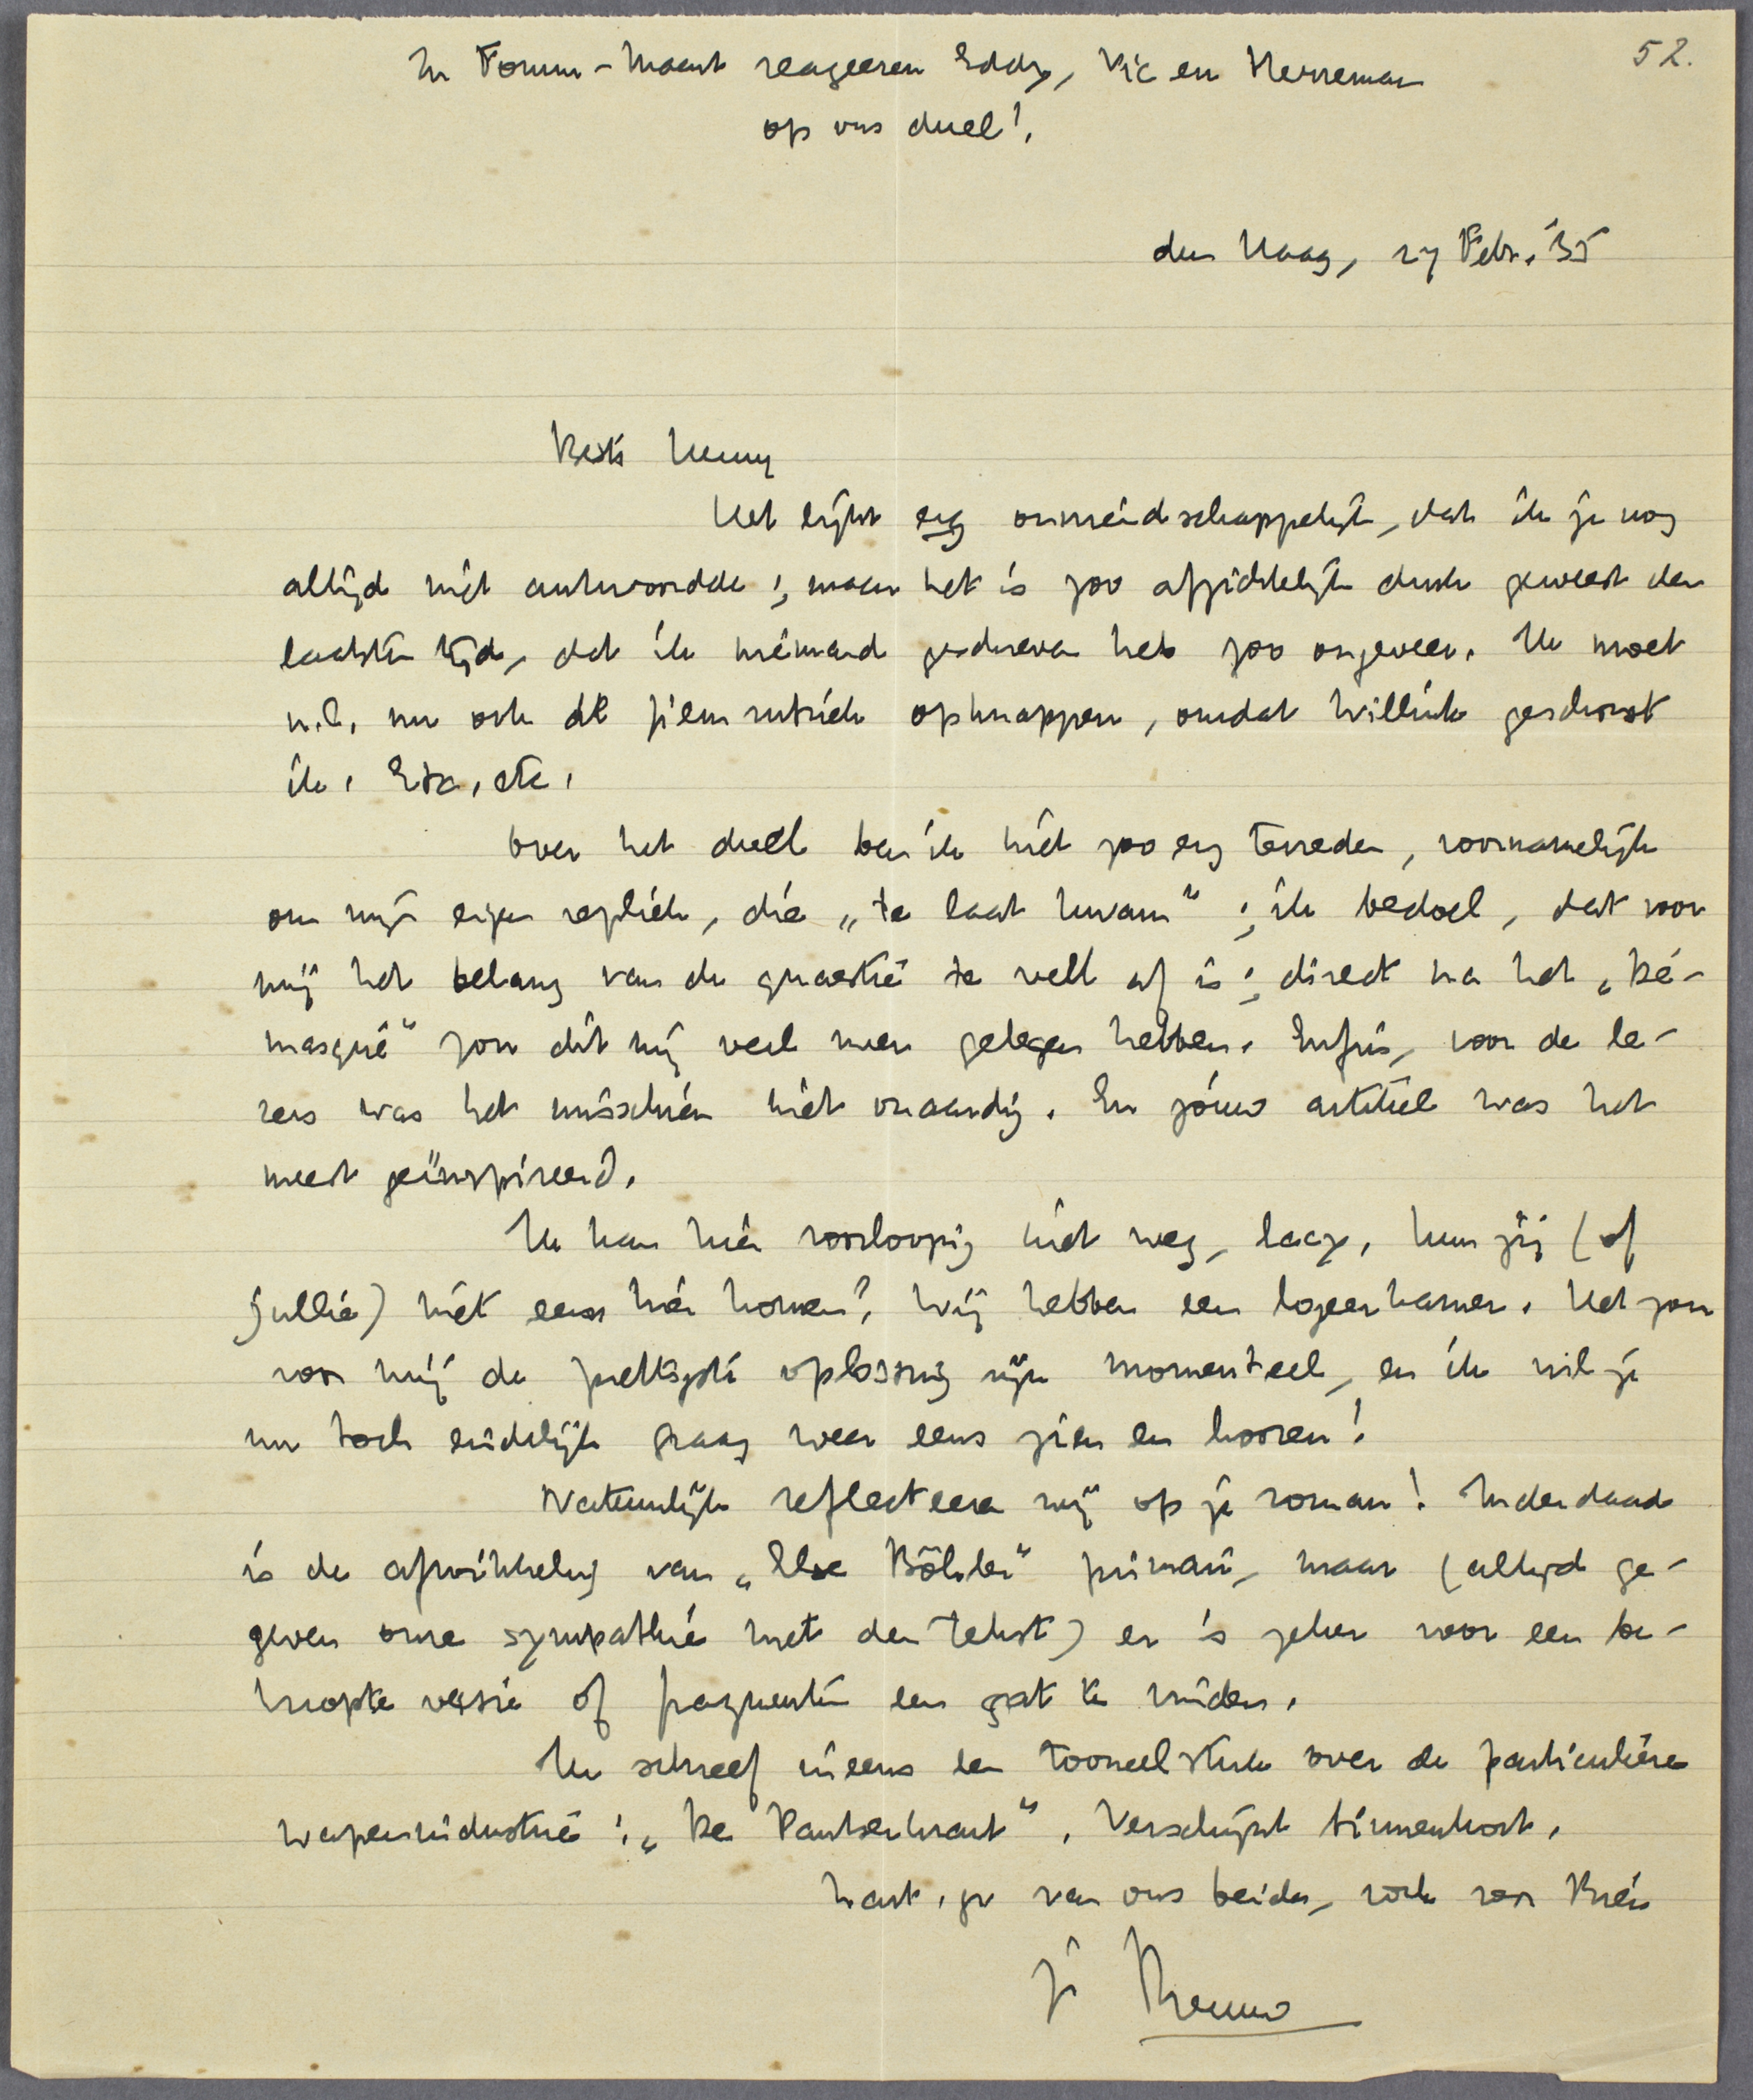 52.
In Forum-Maart reageeren Eddy, Vic en Herreman
op ons duel!
den Haag, 27 Febr. '35
Beste Henny
Het lijkt erg onvriendschappelijk, dat ik je nog
altijd niet antwoordde; maar het is zoo afzichtelijk druk geweest den
laatsten tijd, dat ik niemand geschreven heb zoo ongeveer. Ik moet
n.l. nu ook de filmrubriek opknappen, omdat Willink geschorst
is. Etc, etc.
Over het duel ben ik niet zoo erg tevreden, voornamelijk
om mijn eigen repliek, die „te laat kwam"; ik bedoel, dat voor
mij het belang van de quaestie te veel af is; direct na het „Dé-
masqué" zou dit mij veel meer gelegen hebben. Enfin, voor de le-
zers was het misschien niet onaardig. En jóuw artikel was het
meest geïnspireerd.
Ik kan hier voorloopig niet weg, laat, kun jij (of
jullie) niet eens hier komen? Wij hebben een logeerkamer. Het zou
voor mij de prettigste oplossing zijn momenteel, en ik wil je
nu toch eindelijk graag weer eens zien en hooren!
Natuurlijk reflecteeren wij op je roman! Inderdaad
is de afwikkeling van „Else Böhler" primair, maar (altijd ge-
geven onze sympathie met den tekst) er is zeker voor een be-
knopte versie of fragmenten een gat te vinden.
Ik schreef ineens een tooneelstuk over de particuliere
wapenindustrie: „De Pantserkrant". Verschijnt binnenkort.
hart. gr van ons beiden, ook voor Brés
je Menno